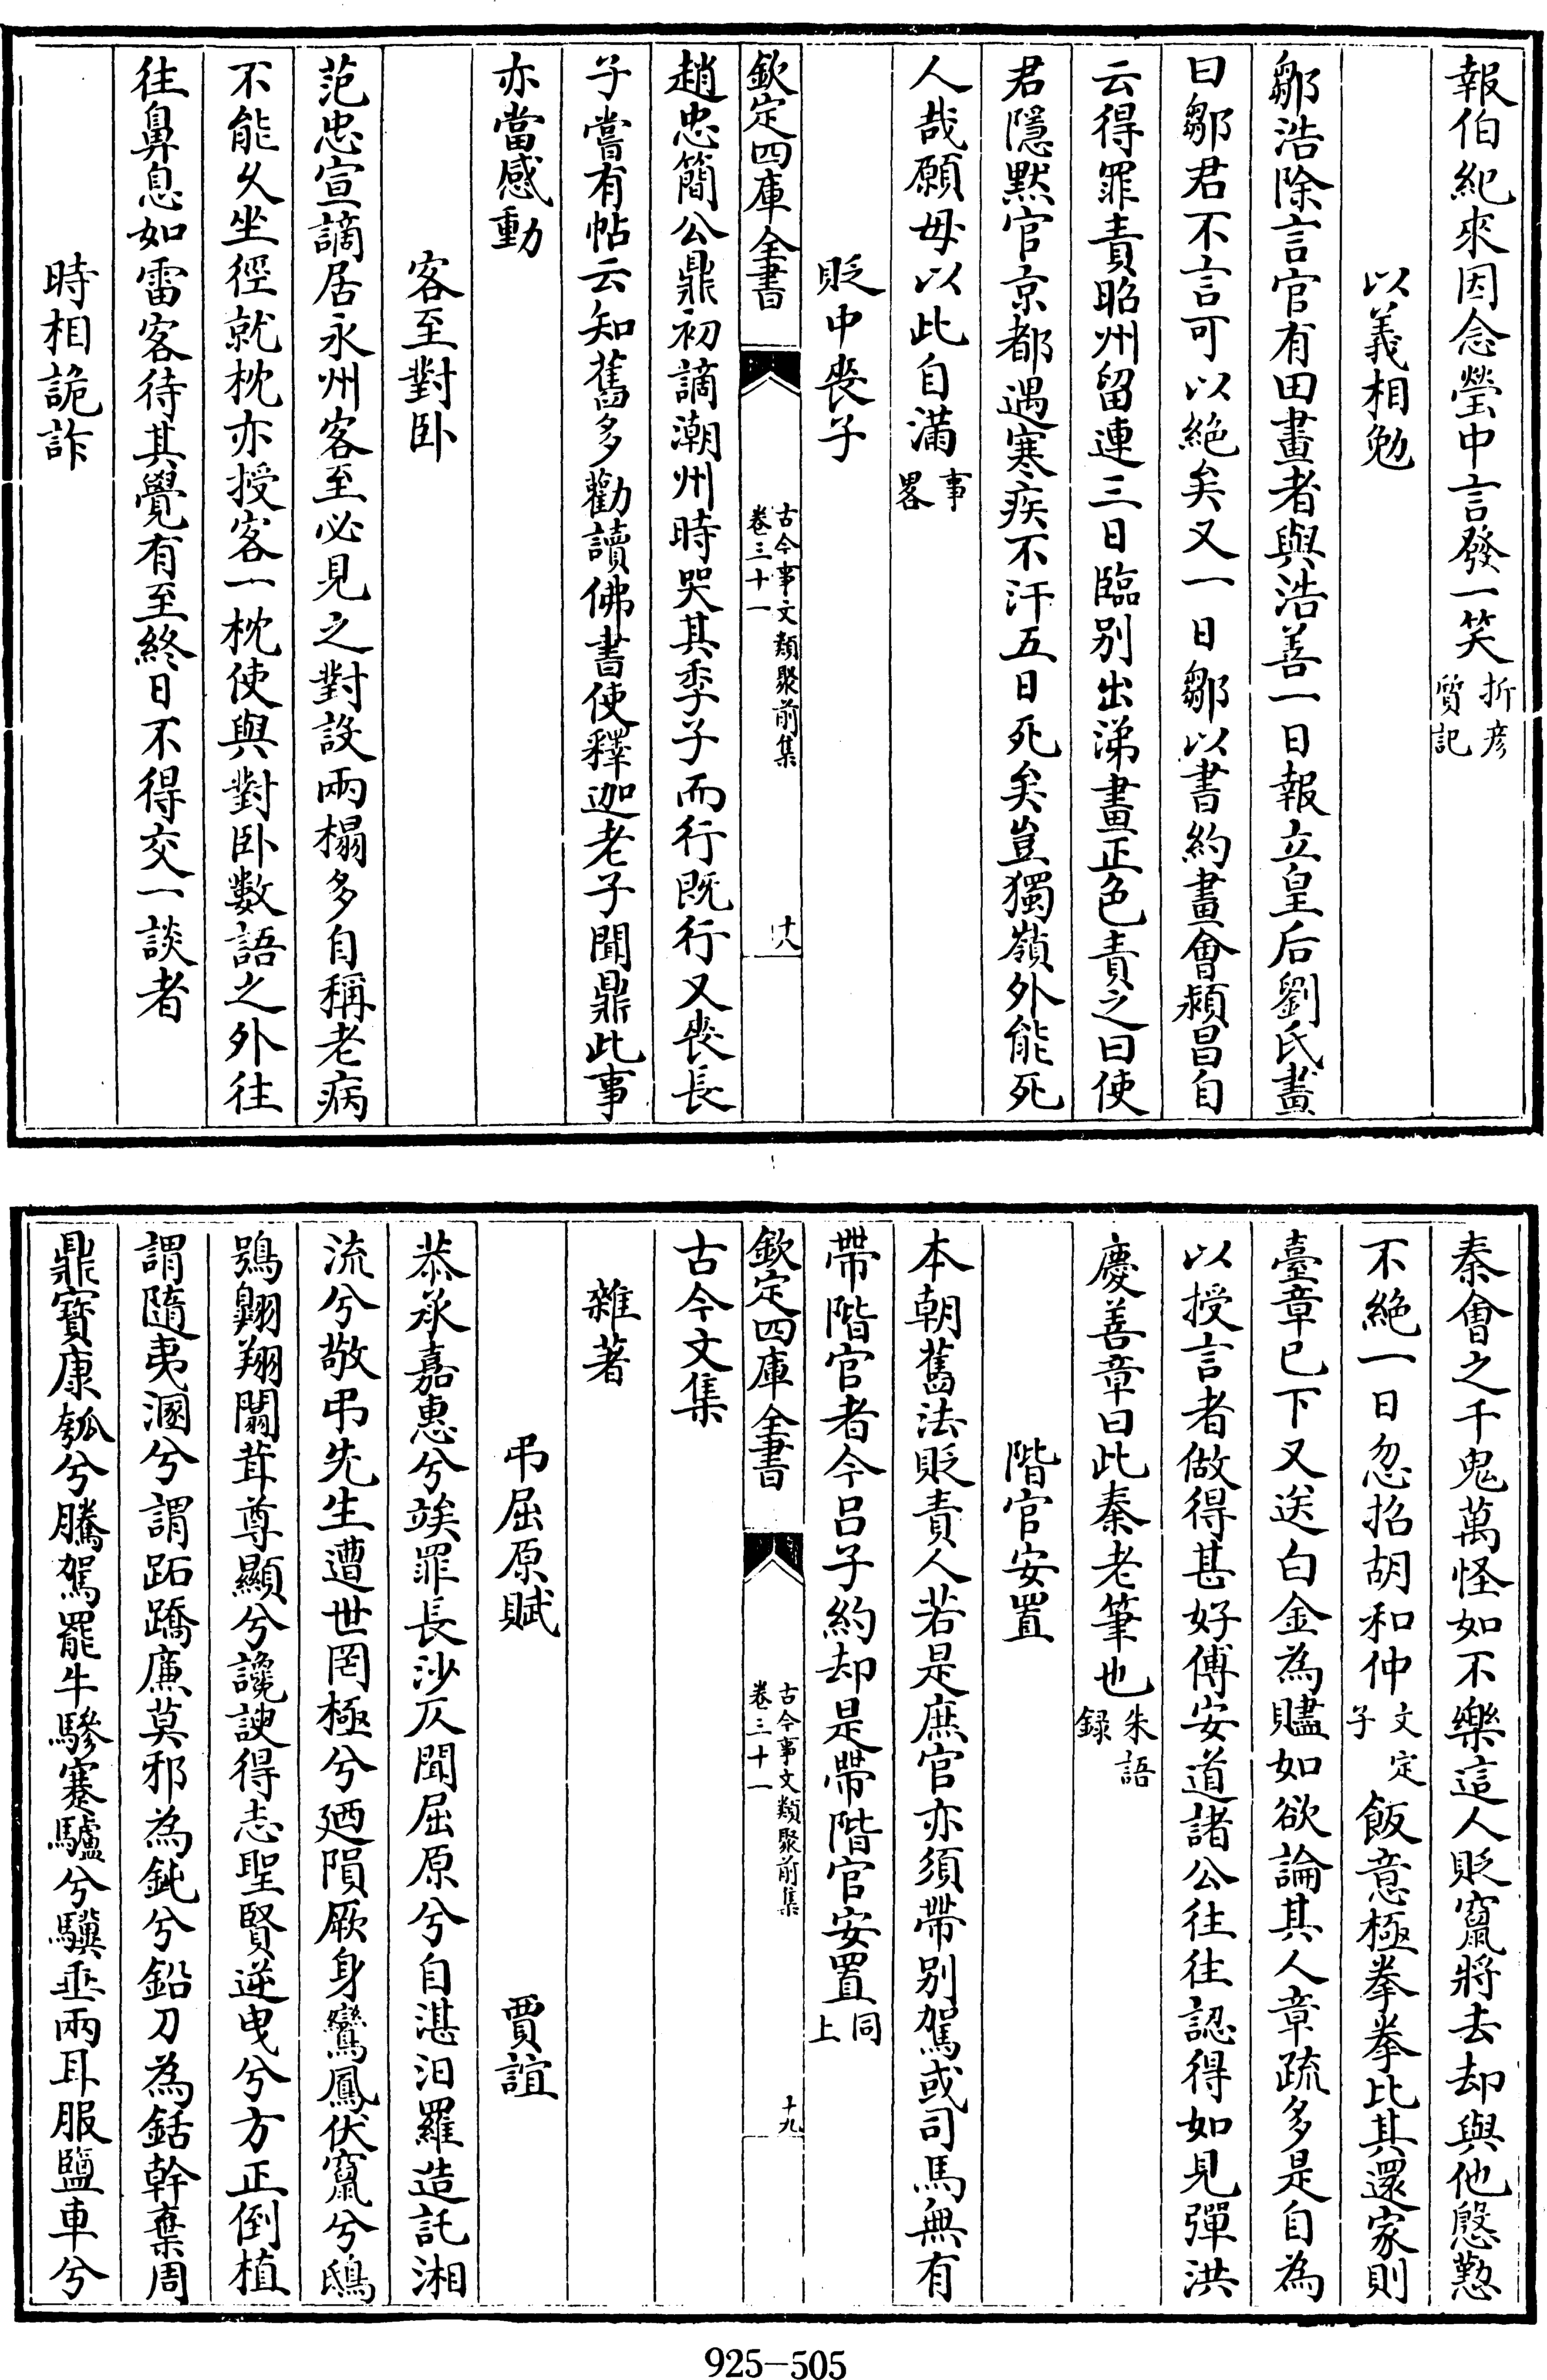 報伯紀來因念瑩中言發一笑折彦質記
以義相勉
鄒浩除言官有田晝者與浩善一日報立皇后劉氏晝
曰鄒君不言可以絶矣又一日鄒以書約晝會潁昌自
云得罪責昭州留連三日臨别出涕晝正色責之曰使
君隱黙官京都遇寒疾不汗五日死矣豈獨嶺外能死
人哉願毋以此自滿事畧
貶中喪子
欽定四庫全書
古今事文類聚前集
卷三十一
十八
趙忠簡公鼎初謫潮州時哭其季子而行既行又喪長
子嘗有帖云知舊多勸讀佛書使釋迦老子聞鼎此事
亦當感動
客至對卧
范忠宣謫居永州客至必見之對設兩榻多自稱老病
不能久坐徑就枕亦授客一枕使與對卧數語之外往
往鼻息如雷客待其覺有至終日不得交一談者
時相詭詐
秦會之千鬼萬怪如不樂這人貶竄將去却與他慇懃
不絶一日忽招胡和仲文定子飯意極拳拳比其還家則
臺章已下又送白金為贐如欲論其人章疏多是自為
以授言者做得甚好傅安道諸公往往認得如見彈洪
慶善章曰此秦老筆也朱語録
階官安置
本朝舊法貶責人若是庶官亦須帶别駕或司馬無有
帶階官者今吕子約却是帶階官安置同上
欽定四庫全書
古今事文類聚前集
卷三十一
十九
古今文集
雜著
弔屈原賦 賈誼
恭承嘉惠兮竢罪長沙仄聞屈原兮自湛汨羅造託湘
流兮敬弔先生遭世罔極兮廼隕厥身鸞鳳伏竄兮鴟
鴞翺翔闒茸尊顯兮讒諛得志聖賢逆曳兮方正倒植
謂隨夷溷兮謂跖蹻廉莫邪為鈍兮鉛刀為銛幹棄周
鼎寳康瓠兮騰駕罷牛驂蹇驢兮驥垂兩耳服鹽車兮
925-505